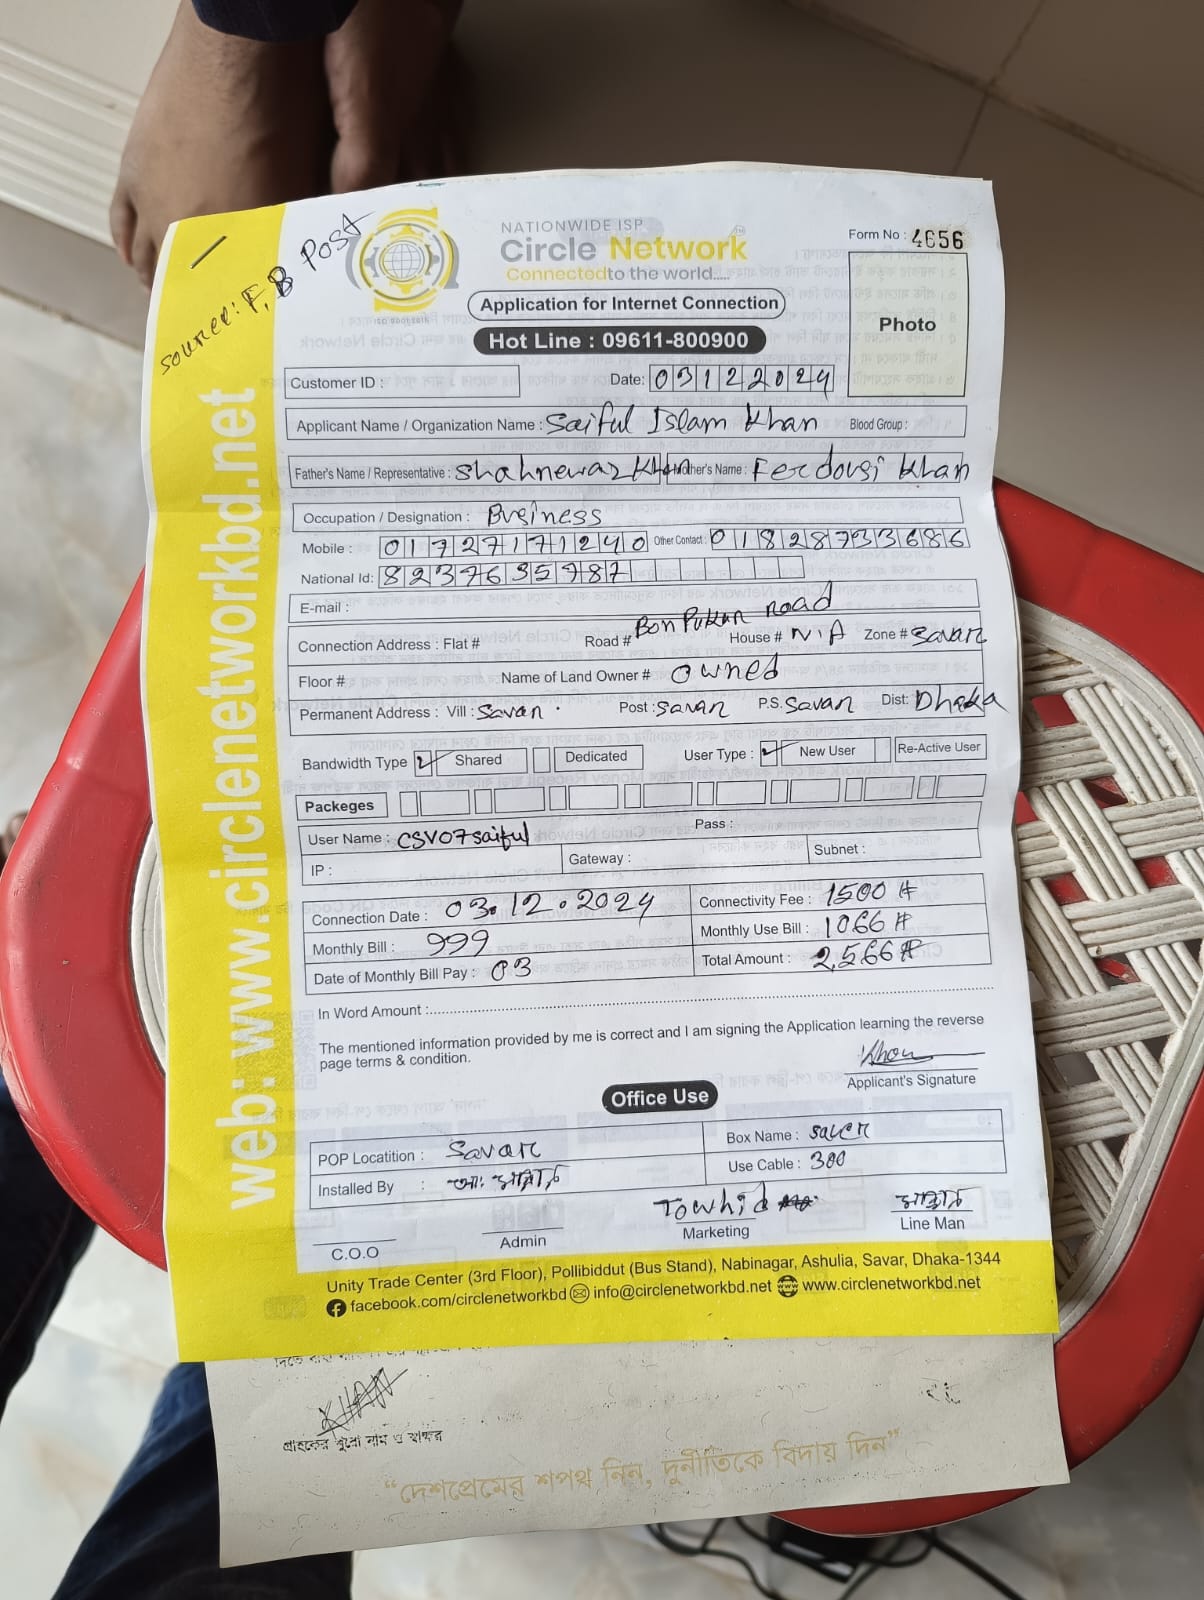 source: F, B Post
NATIONWIDE ISP
Circle Network
Connected to the world.....
ISO 9001:2015
Form No : 4656
Application for Internet Connection
Photo
Hot Line : 09611-800900
Customer ID :
Date: 03122024
Applicant Name / Organization Name : Saiful Islam Khan Blood Group :
Father's Name / Representative : Shahnewaz Khan Mother's Name : Ferdousi Khan
Occupation / Designation : Business
Mobile : 01727171240 Other Contact : 01828733686
National Id: 8237635787
E-mail :
Connection Address : Flat # Road # Bon Pukur Road House # N.A Zone # Savar
Floor # Name of Land Owner # Owned
Permanent Address : Vill : Savar. Post : Savar P.S. Savar Dist: Dhaka
Bandwidth Type Shared Dedicated User Type : New User Re-Active User
Packeges
User Name : CSV07saiful Pass :
IP : Gateway : Subnet :
Connection Date : 03.12.2024 Connectivity Fee : 1500 #
Monthly Bill : 999 Monthly Use Bill : 1066 #
Date of Monthly Bill Pay : 03 Total Amount : 2,566 #
In Word Amount :
The mentioned information provided by me is correct and I am signing the Application learning the reverse
page terms & condition.
Khan
Applicant's Signature
Office Use
POP Locatition : Savar Box Name : Saver
Installed By : Use Cable : 300
Towhid
C.O.O Admin Marketing Line Man
Unity Trade Center (3rd Floor), Pollibiddut (Bus Stand), Nabinagar, Ashulia, Savar, Dhaka-1344
facebook.com/circlenetworkbd info@circlenetworkbd.net www.circlenetworkbd.net
web: www.circlenetworkbd.net
KHAN
গ্রাহকের পুরো নাম ও স্বাক্ষর
“দেশপ্রেমের শপথ নিন, দুর্নীতিকে বিদায় দিন”